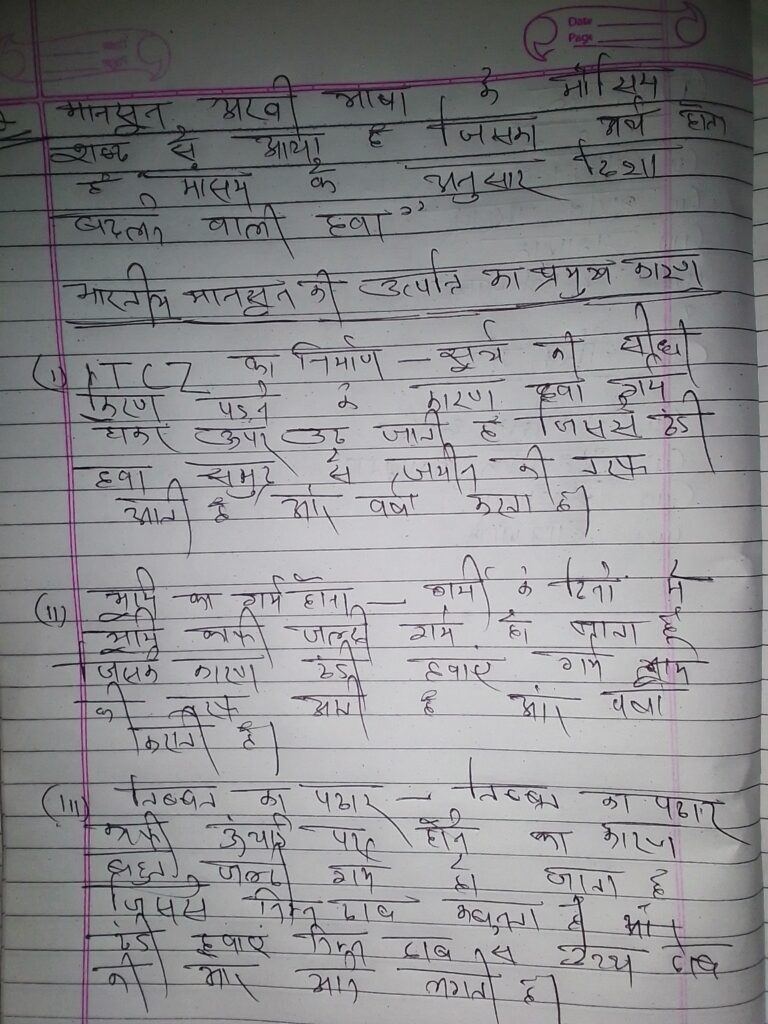 Date
Page
मानसून अरबी भाषा के मौसिम
शब्द से आया है जिसका अर्थ होता
है मौसम के अनुसार दिशा
बदलने वाली हवा"
भारतीय मानसून की उत्पत्ति का प्रमुख कारण
(i) ITCZ का निर्माण - सूर्य की सीधी
किरण पड़ने के कारण हवा गर्म
होकर ऊपर उठ जाती है जिससे ठंडी
हवा समुद्र से जमीन की तरफ
आती है और वर्षा करता है।
(ii) भूमि का गर्म होना - गर्मी के दिनों में
भूमि काफी जल्दी गर्म हो जाता है
जिसके कारण ठंडी हवाएं गर्म भूमि
की तरफ आती है और वर्षा
करती है।
(iii) तिब्बत का पठार - तिब्बत का पठार
काफी ऊंचाई पर होने का कारण
बहुत जल्द गर्म हो जाता है
जिससे निम्न दाब बनता है और
ठंडी हवाएं निम्न दाब से उच्च दाब
की ओर आने लगती है।